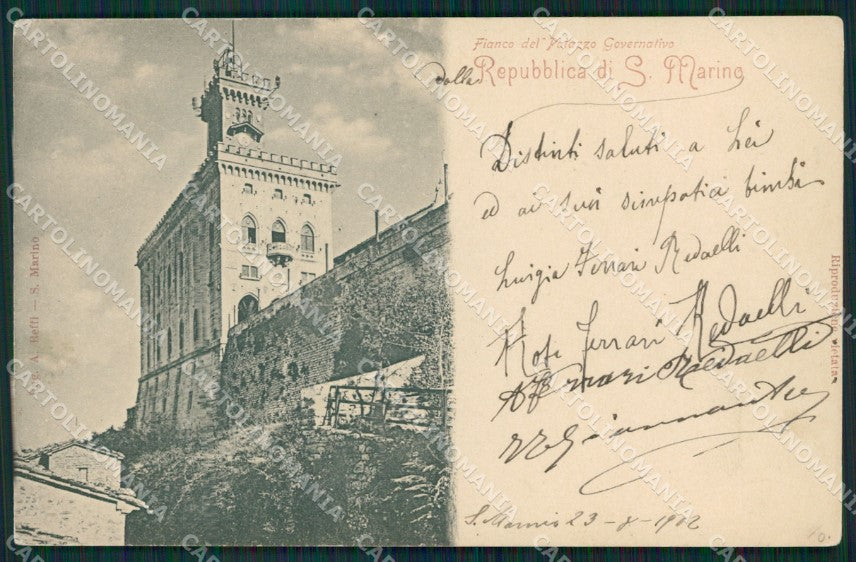 Fianco del Palazzo Governativo
dalla Repubblica di S. Marino
Distinti saluti a Lei
ed ai suoi simpatici bimbi
Luigia Ferrari Redaelli
Rosa Ferrari Redaelli
Ferrari Redaelli
S. Marino 23-8-1902
A. Reffi — S. Marino
Riproduzione vietata
10.
CARTOLINOMANIA